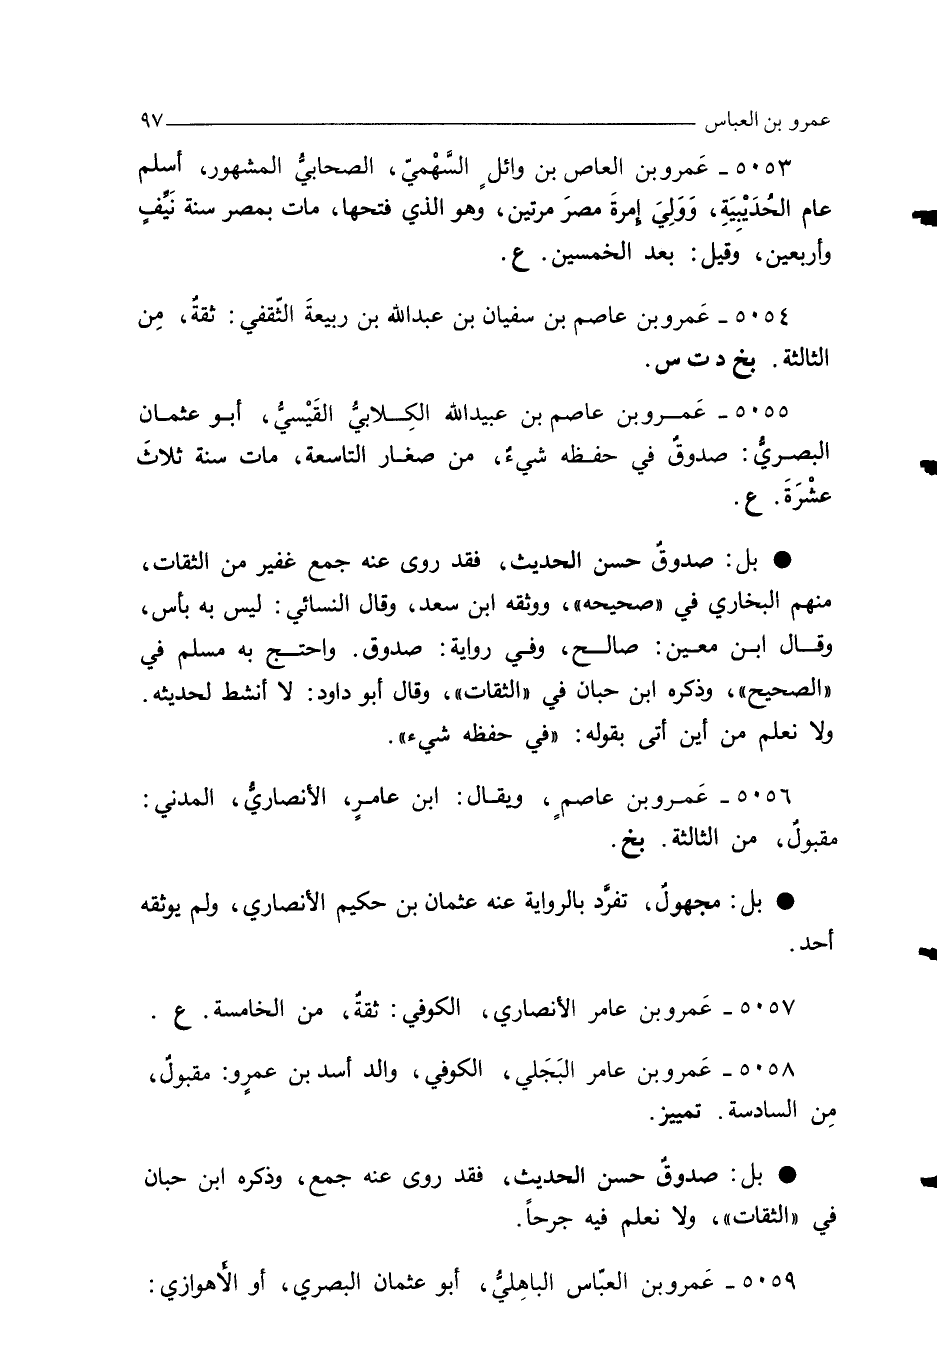 عمرو بن العباس ٩٧
٥٠٥٣ ـ عَمرو بن العاص بن وائلٍ السَّهْميّ، الصحابيُّ المشهور، أسلم
عام الحُدَيْبِيَةِ، وَوَلِيَ إمرةَ مصرَ مرتين، وهو الذي فتحها، مات بمصر سنة نَيِّفٍ
وأربعين، وقيل: بعد الخمسين. ع.
٥٠٥٤ ـ عَمرو بن عاصم بن سفيان بن عبدالله بن ربيعةَ الثّقفي: ثقةٌ، مِن
الثالثة. بخ د ت س.
٥٠٥٥ ـ عَمرو بن عاصم بن عبيدالله الكِلابيُّ القَيْسيُّ، أبو عثمان
البصريُّ: صدوقٌ في حفظه شيءٌ، من صغار التاسعة، مات سنة ثلاثَ
عشْرَةَ. ع.
● بل: صدوقٌ حسن الحديث، فقد روى عنه جمع غفير من الثقات،
منهم البخاري في «صحيحه»، ووثقه ابن سعد، وقال النسائي: ليس به بأس،
وقال ابن معين: صالح، وفي رواية: صدوق. واحتج به مسلم في
«الصحيح»، وذكره ابن حبان في «الثقات»، وقال أبو داود: لا أنشط لحديثه.
ولا نعلم من أين أتى بقوله: «في حفظه شيء».
٥٠٥٦ ـ عَمرو بن عاصمٍ، ويقال: ابن عامرٍ، الأنصاريُّ، المدني:
مقبولٌ، من الثالثة. بخ.
● بل: مجهولٌ، تفرَّد بالرواية عنه عثمان بن حكيم الأنصاري، ولم يوثقه
أحد.
٥٠٥٧ ـ عَمرو بن عامر الأنصاري، الكوفي: ثقةٌ، من الخامسة. ع.
٥٠٥٨ ـ عَمرو بن عامر البَجَلي، الكوفي، والد أسد بن عمرٍو: مقبولٌ،
مِن السادسة. تمييز.
● بل: صدوقٌ حسن الحديث، فقد روى عنه جمع، وذكره ابن حبان
في «الثقات»، ولا نعلم فيه جرحاً.
٥٠٥٩ ـ عَمرو بن العبّاس الباهِليُّ، أبو عثمان البصري، أو الأَهوازي: